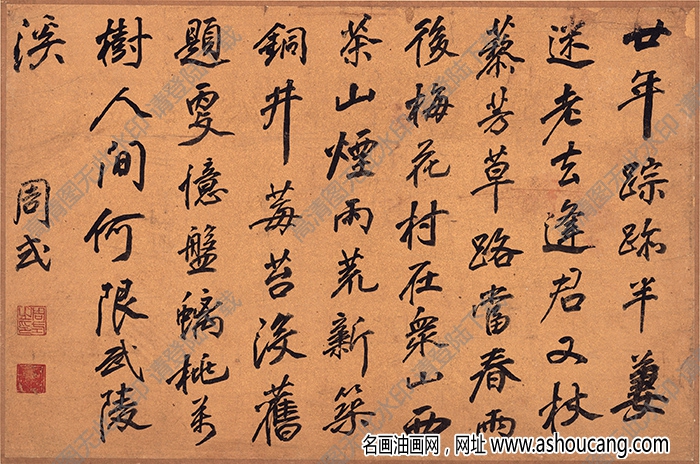 廿年踪跡半萋
迷老去逢君又杖
藜芳草路當春雨
後梅花村在衆山西
茶山煙雨荒新築
銅井莓苔没舊
題更憶盤螭桃萬
樹人間何限武陵
溪
周
高清图无水印 请登陆下载
名画油画网，网址 www.ashoucang.com